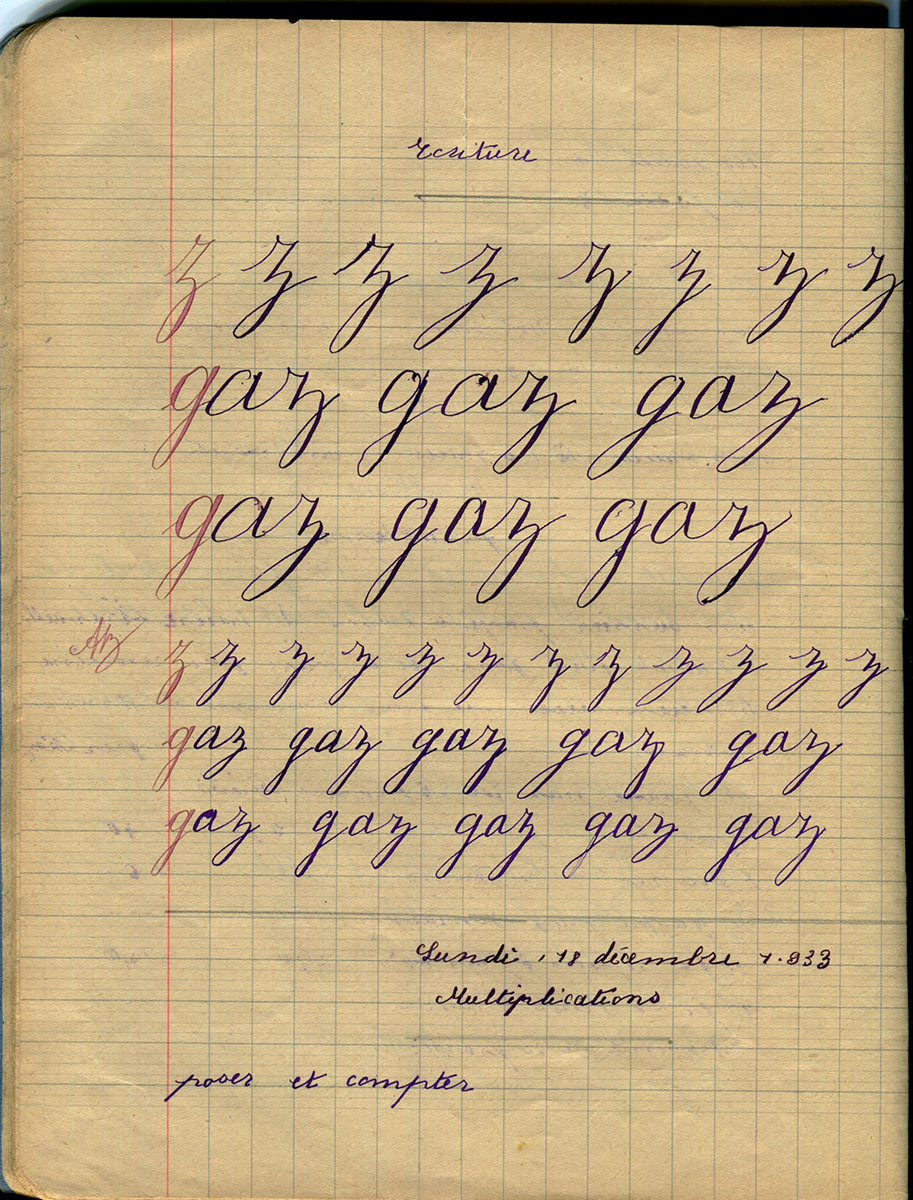 Ecriture
z z z z z z z z
gaz gaz gaz
gaz gaz gaz
z z z z z z z z z z z z
gaz gaz gaz gaz gaz
gaz gaz gaz gaz gaz
Lundi, 18 décembre 1.933
Multiplications
poser et compter